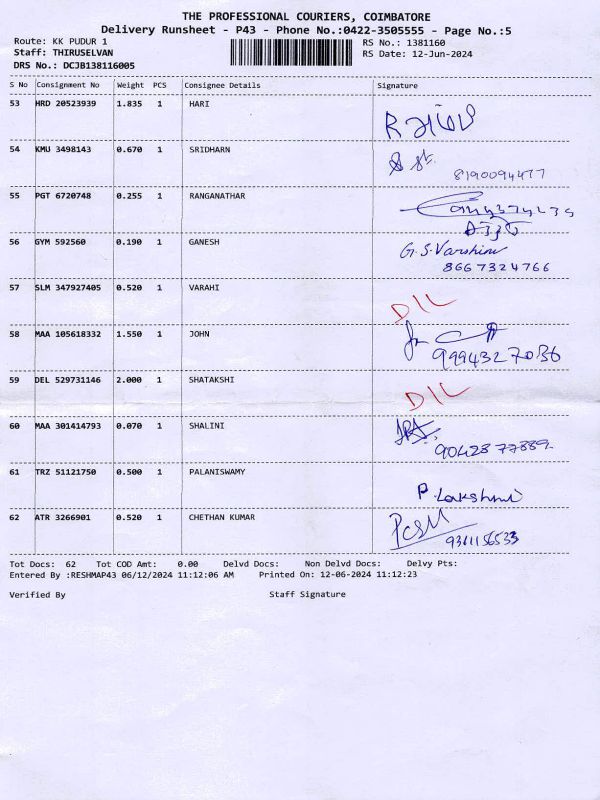 THE PROFESSIONAL COURIERS, COIMBATORE
Delivery Runsheet - P43 - Phone No.:0422-3505555 - Page No.:5
Route: KK PUDUR 1 RS No.: 1381160
Staff: THIRUSELVAN RS Date: 12-Jun-2024
DRS No.: DCJB138116005
S No Consignment No Weight PCS Consignee Details Signature
53 HRD 20523939 1.835 1 HARI
54 KMU 3498143 0.670 1 SRIDHARN
8190094477
55 PGT 6720748 0.255 1 RANGANATHAR
56 GYM 592560 0.190 1 GANESH G.S.Varshini
8667324766
57 SLM 347927405 0.520 1 VARAHI
D/L
58 MAA 105618332 1.550 1 JOHN
9994327036
59 DEL 529731146 2.000 1 SHATAKSHI
D/L
60 MAA 301414793 0.070 1 SHALINI
9042877889
61 TRZ 51121750 0.500 1 PALANISWAMY
P. Lakshmi
62 ATR 3266901 0.520 1 CHETHAN KUMAR
9361156533
Tot Docs: 62 Tot COD Amt: 0.00 Delvd Docs: Non Delvd Docs: Delvy Pts:
Entered By :RESHMAP43 06/12/2024 11:12:06 AM Printed On: 12-06-2024 11:12:23
Verified By Staff Signature